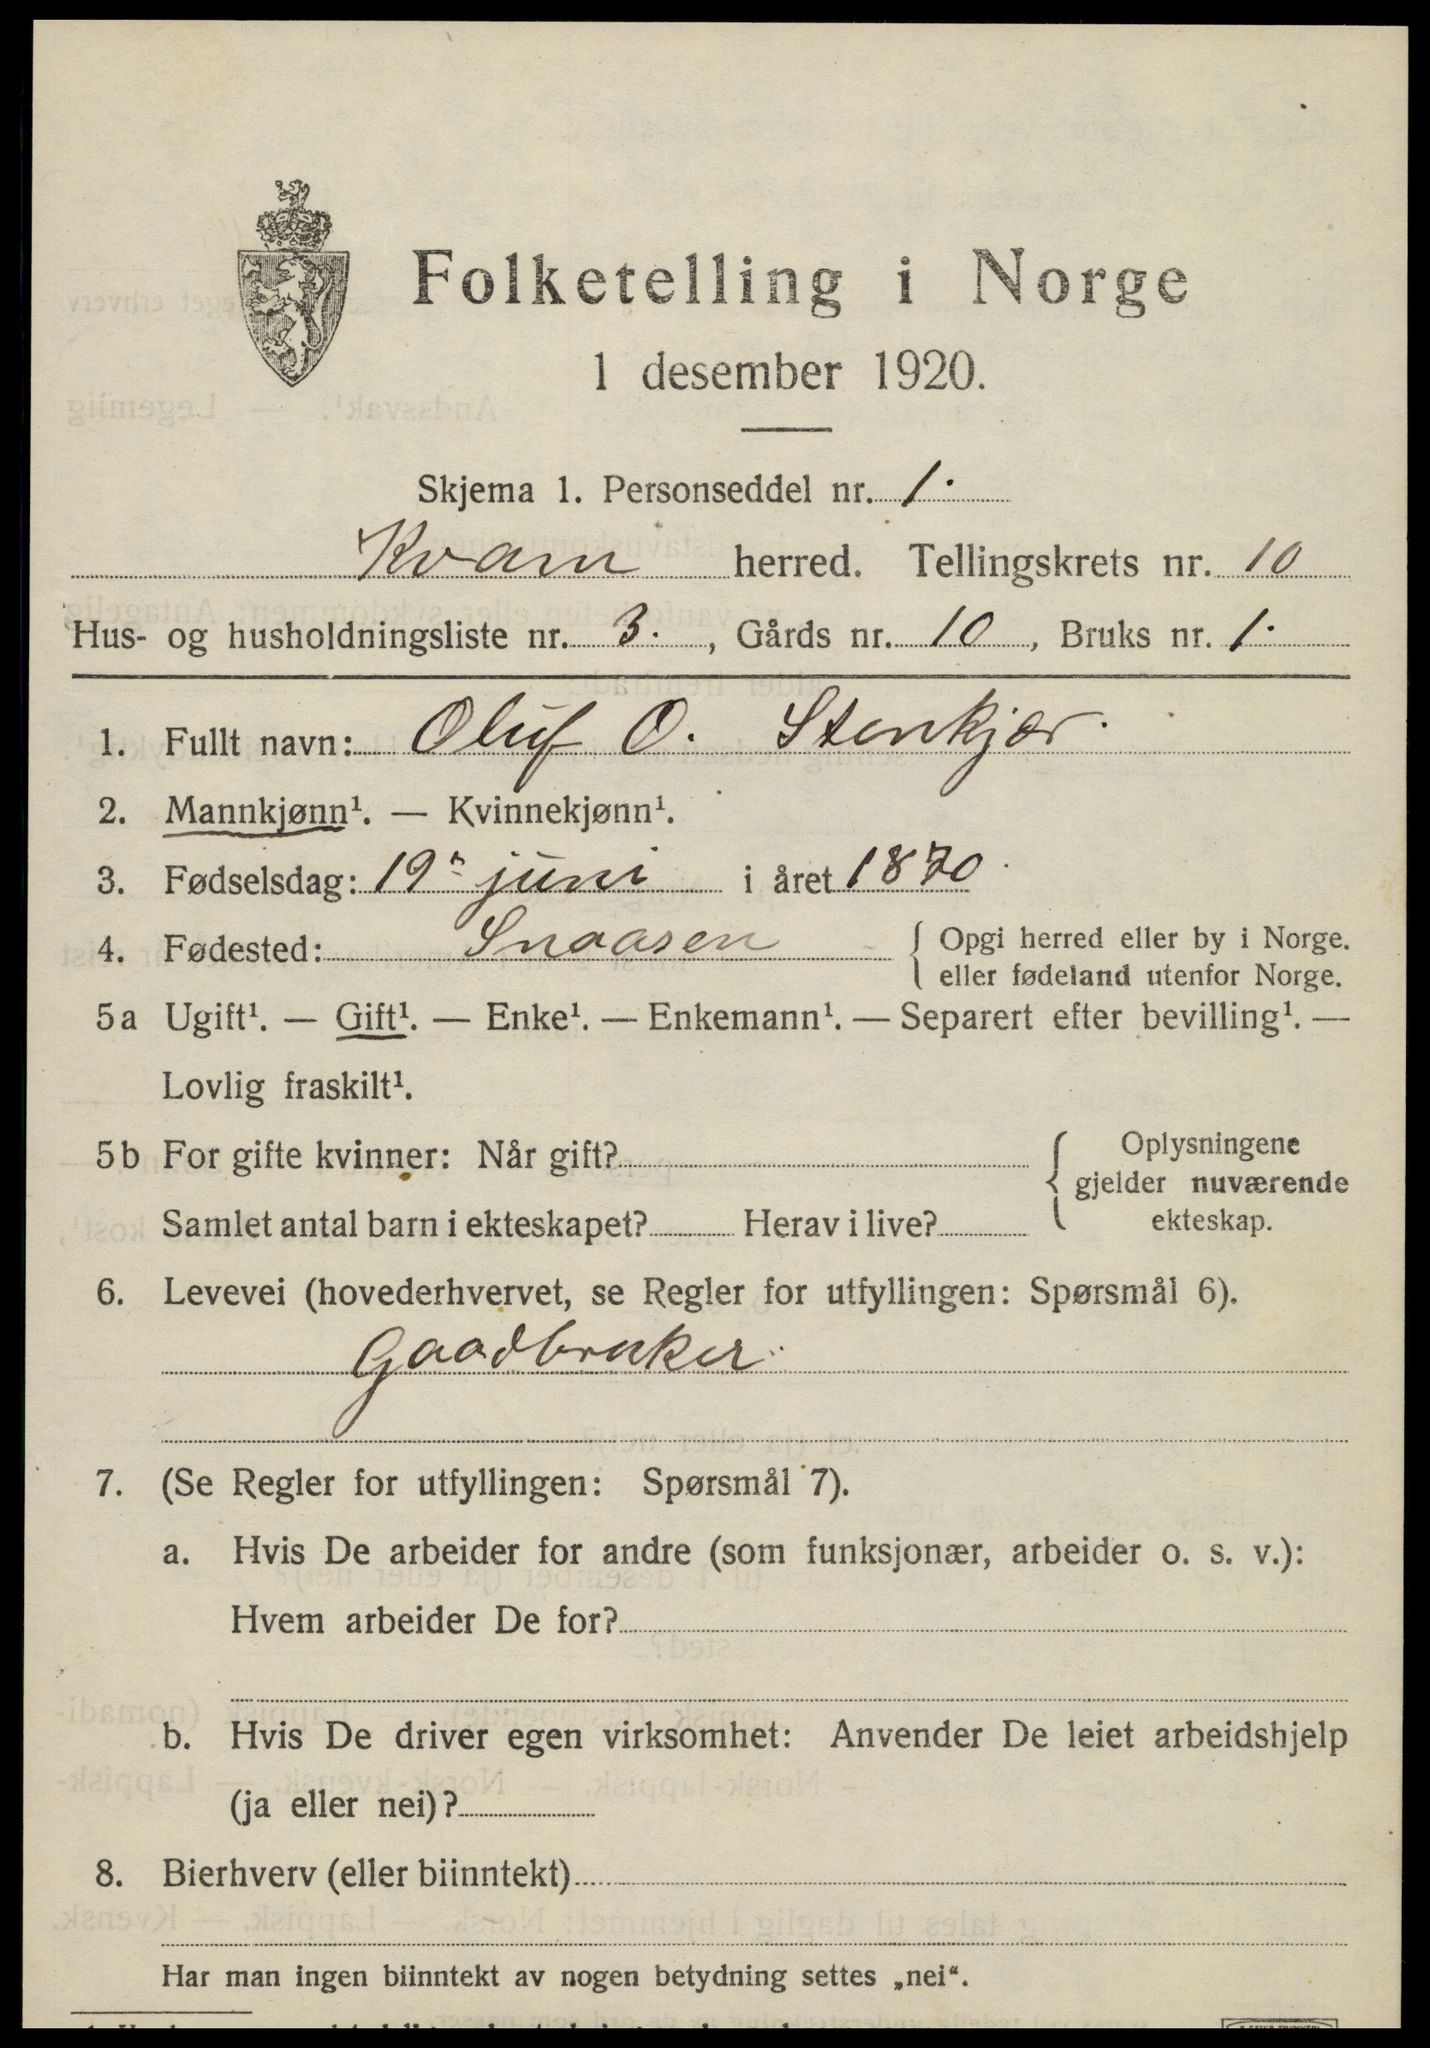 Folketelling i Norge
1 desember 1920.
Skjema 1. Personseddel nr. 1.
Kvam herred. Tellingskrets nr. 10
Hus- og husholdningsliste nr. 3. , Gårds nr. 10 , Bruks nr. 1.
1. Fullt navn: Oluf O. Stenkjær.
2. Mannkjønn¹. — Kvinnekjønn¹.
3. Fødselsdag: 19de juni i året 1870
4. Fødested: Snaasen { Opgi herred eller by i Norge.
eller fødeland utenfor Norge.
5a Ugift¹. — Gift¹. — Enke¹. — Enkemann¹. — Separert efter bevilling¹. —
Lovlig fraskilt¹.
5b For gifte kvinner: Når gift? { Oplysningene
gjelder nuværende
Samlet antal barn i ekteskapet? Herav i live? ekteskap.
6. Levevei (hovederhvervet, se Regler for utfyllingen: Spørsmål 6).
Gaadbruker.
7. (Se Regler for utfyllingen: Spørsmål 7).
a. Hvis De arbeider for andre (som funksjonær, arbeider o. s. v.):
Hvem arbeider De for?
b. Hvis De driver egen virksomhet: Anvender De leiet arbeidshjelp
(ja eller nei)?
8. Bierhverv (eller biinntekt)
Har man ingen biinntekt av nogen betydning settes „nei“.